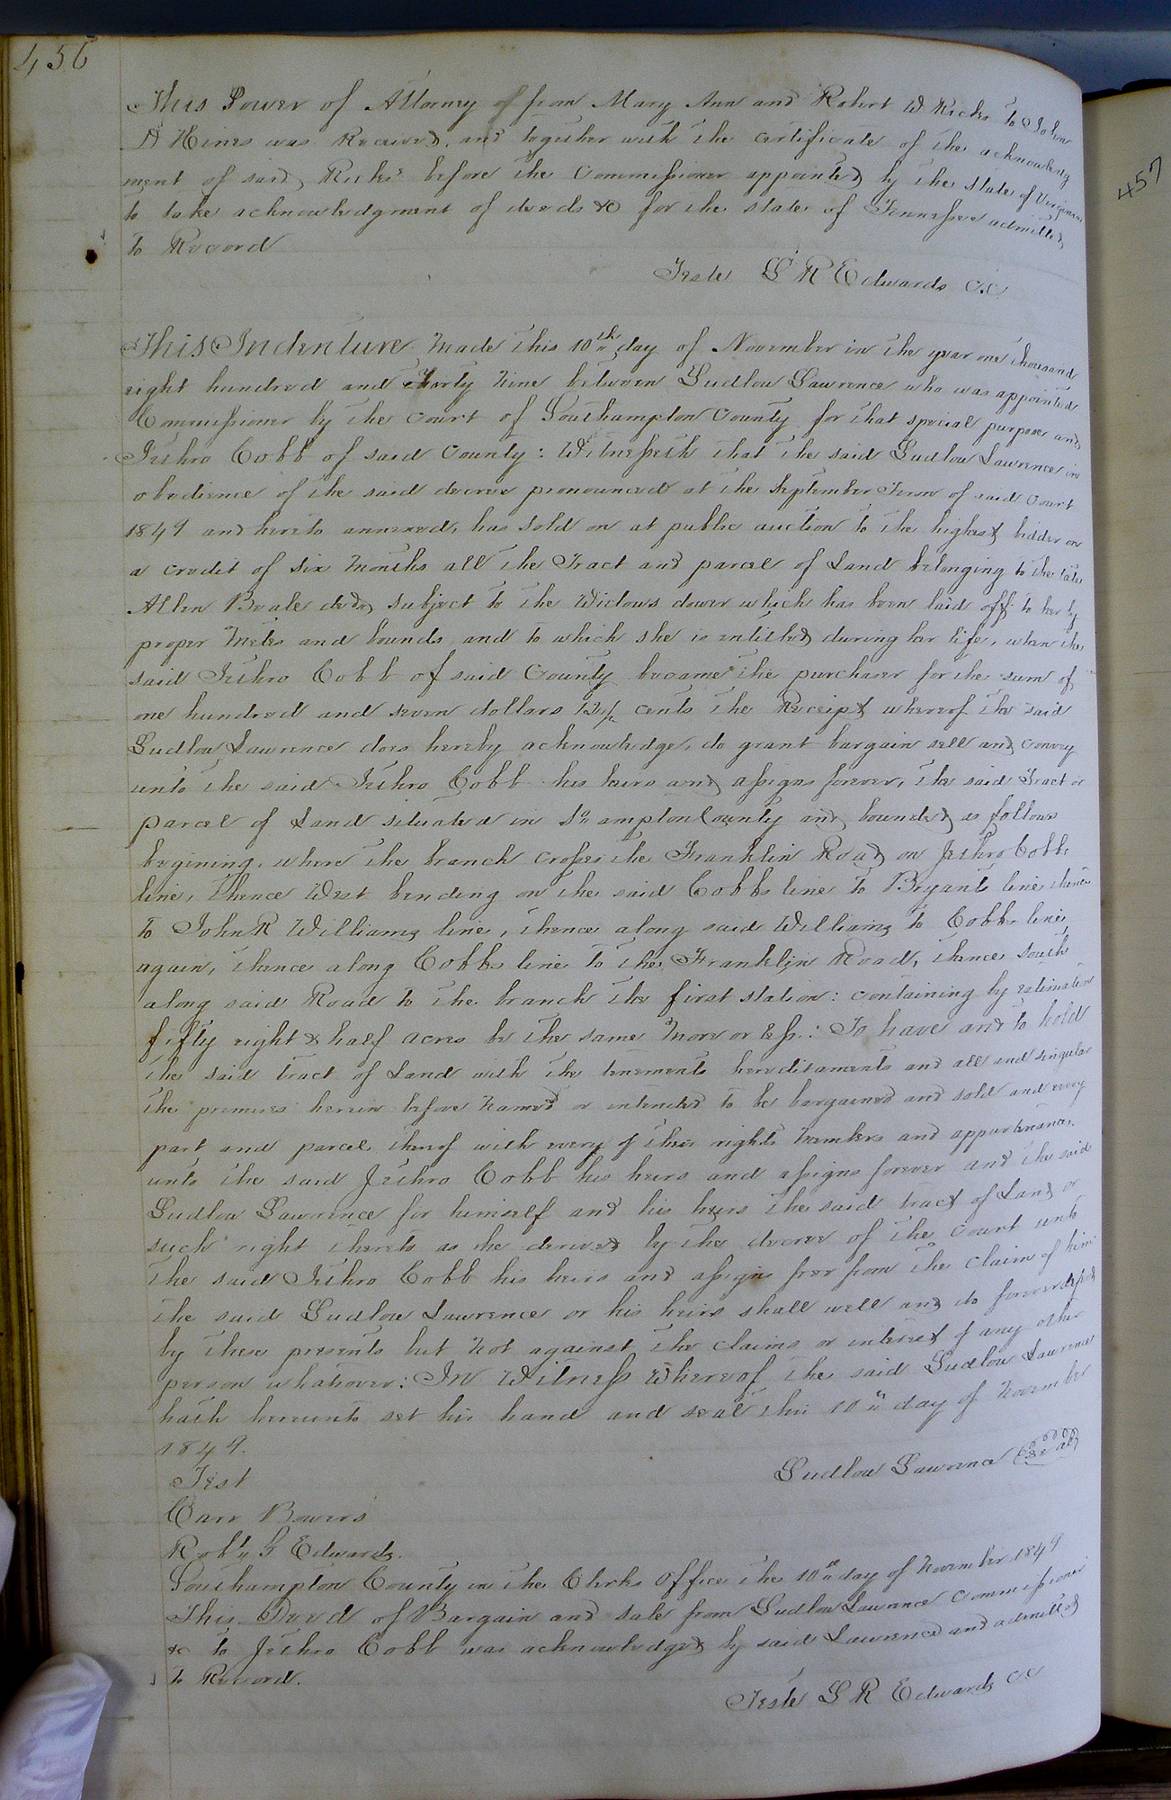 456
This Power of Attorney of from Mary Ann and Robert W Ricks to John
D Hines was Received, and together with the certificate of the acknowledg
ment of said Ricks before the Commissioner appointed by the State of Virginia
to take acknowledgment of deeds &c for the state of Tennessee admitted
to Record
Teste L R Edwards CC
457
This Indenture Made this 10th day of November in the year one thousand
eight hundred and Forty Nine between Ludlow Lawrence who was appointed
Commissioner by the Court of Southampton County for that special purpose and
Jethro Cobb of said County: Witnesseth that the said Ludlow Lawrence in
obedience of the said decree pronounced at the September Term of said Court
1849 and hereto annexed, has sold on at public auction to the highest bidder on
a credit of six Months all the Tract and parcel of Land belonging to the late
Allen Beale decd, subject to the Widows dower which has been laid off to her by
proper Metes and bounds and to which she is entitled during her life, when the
said Jethro Cobb of said County became the purchaser for the sum of
one hundred and seven dollars 12½ cents the Receipt whereof the said
Ludlow Lawrence does hereby acknowledge, do grant bargain sell and convey
unto the said Jethro Cobb his heirs and assigns forever, the said Tract or
parcel of Land situated in So ampton County and bounded as follows
begining, where the branch crosses the Franklin Road on Jethro Cobbs
line, thence West bending on the said Cobbs line to Bryants line thence
to John R Williams line, thence along said Williams to Cobbs line
again, thence along Cobbs line to the Franklin Road, thence South
along said Road to the branch the first station: containing by estimation
fifty eight & half acres be the same More or less: To have and to hold
the said tract of Land with the tenements hereditaments and all and singular
the premises herein before Named or intended to be bargained and sold and every
part and parcel thereof with every of their rights Members and appurtenances
unto the said Jethro Cobb his heirs and assigns forever and the said
Ludlow Lawrence for himself and his heirs the said tract of Land or
such right thereto as he derived by the decree of the Court unto
the said Jethro Cobb his heirs and assigns free from the claim of him
the said Ludlow Lawrence or his heirs shall well and do forever defend
by these presents but Not against the claims or interest of any other
person whatever: In Witness Whereof the said Ludlow Lawrence
hath hereunto set his hand and seal this 10th day of November
1849.
Test
Ludlow Lawrence (Seal)
Carr Bowers
Robt G Edwards.
Southampton County in the Clerks Office the 10th day of November 1849
This Deed of Bargain and sale from Ludlow Lawrence Commissioner
&c to Jethro Cobb was acknowledged by said Lawrence and admitted
to Record.
Teste L R Edwards CC